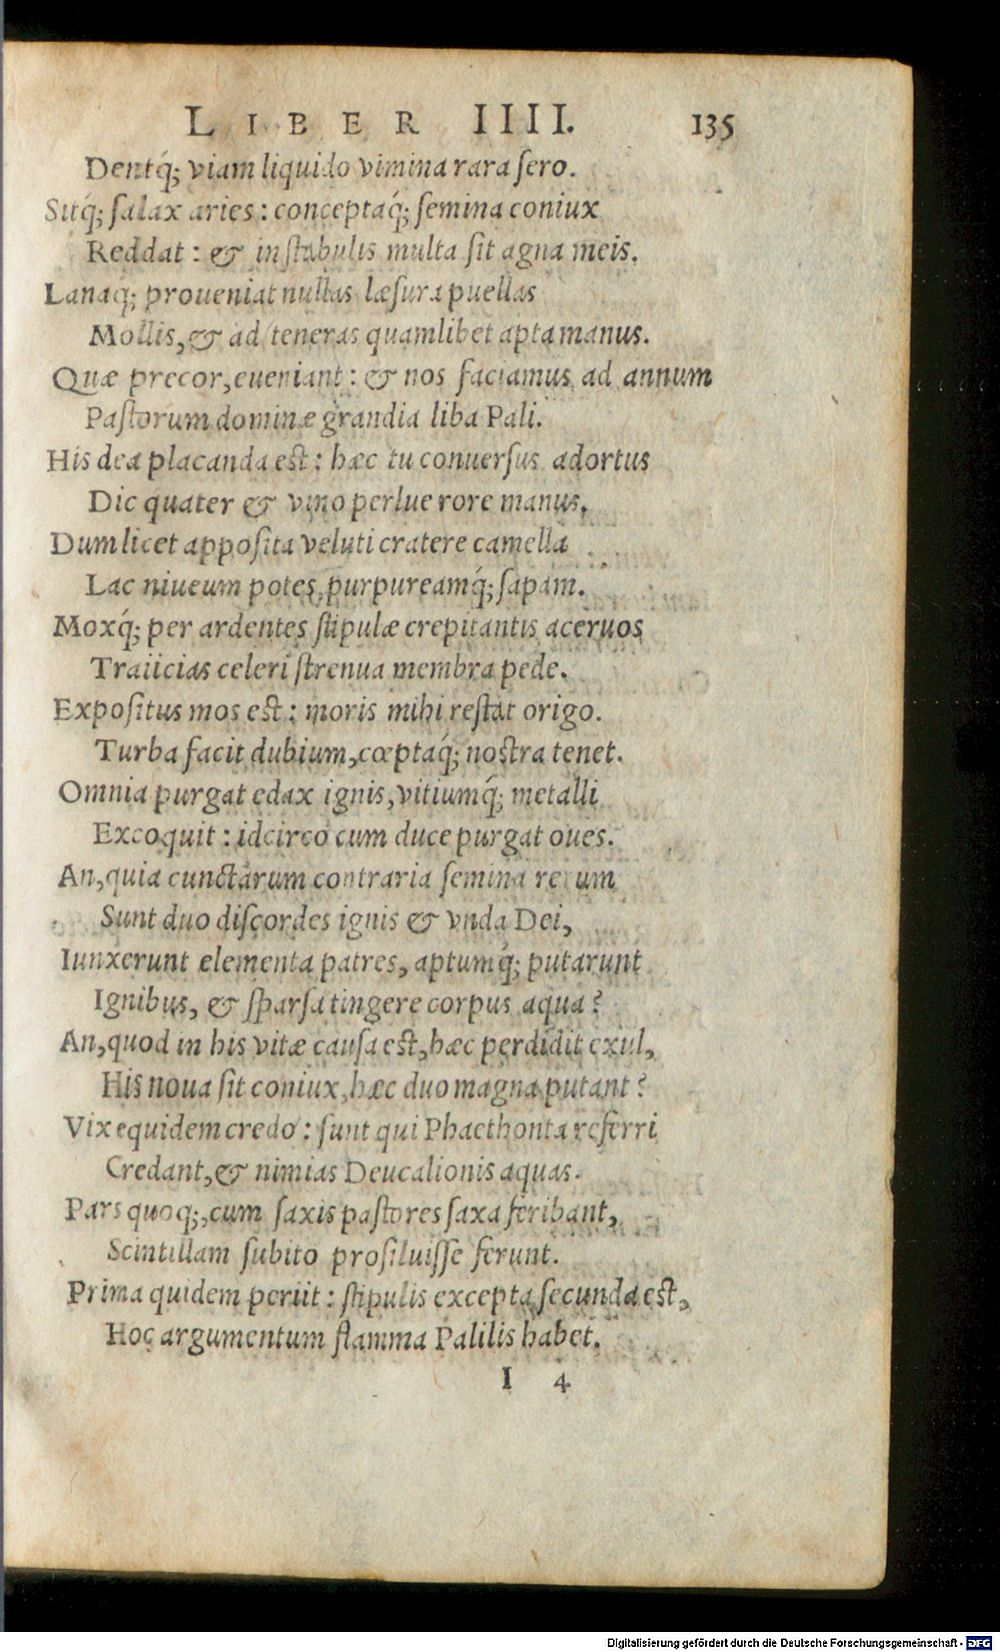 LIBER IIII. 135
Dentq́; viam liquido vimina rara ſero.
Sitq́; ſalax aries: conceptaq́; ſemina coniux
Reddat: & in ſtabulis multa ſit agna meis.
Lanaq́; proueniat nullas læſura puellas
Mollis, & ad teneras quamlibet apta manus.
Quæ precor, eueniant: & nos faciamus ad annum
Paſtorum dominæ grandia liba Pali.
His dea placanda est: hæc tu conuerſus adortus
Dic quater & vino perlue rore manus.
Dum licet appoſita veluti cratere camella
Lac niueum potes, purpureamq́; ſapam.
Moxq́; per ardentes ſtipulæ crepitantis aceruos
Traiicias celeri ſtrenua membra pede.
Expoſitus mos est: moris mihi reſtat origo.
Turba facit dubium, cœptaq́; nostra tenet.
Omnia purgat edax ignis, vitiumq́; metalli
Excoquit: idcirco cum duce purgat oues.
An, quia cunctarum contraria ſemina rerum
Sunt duo diſcordes ignis & vnda Dei,
Iunxerunt elementa patres, aptumq́; putarunt
Ignibus, & ſparſa tingere corpus aqua?
An, quod in his vitæ cauſa est, hæc perdidit exul,
His noua ſit coniux, hæc duo magna putant?
Vix equidem credo: ſunt qui Phaethonta referri
Credant, & nimias Deucalionis aquas.
Pars quoq;, cum ſaxis paſtores ſaxa feribant,
Scintillam ſubito proſiluiſſe ferunt.
Prima quidem periit: ſtipulis excepta ſecunda est,
Hoc argumentum flamma Palilis habet.
I 4
Digitalisierung gefördert durch die Deutsche Forschungsgemeinschaft - DFG